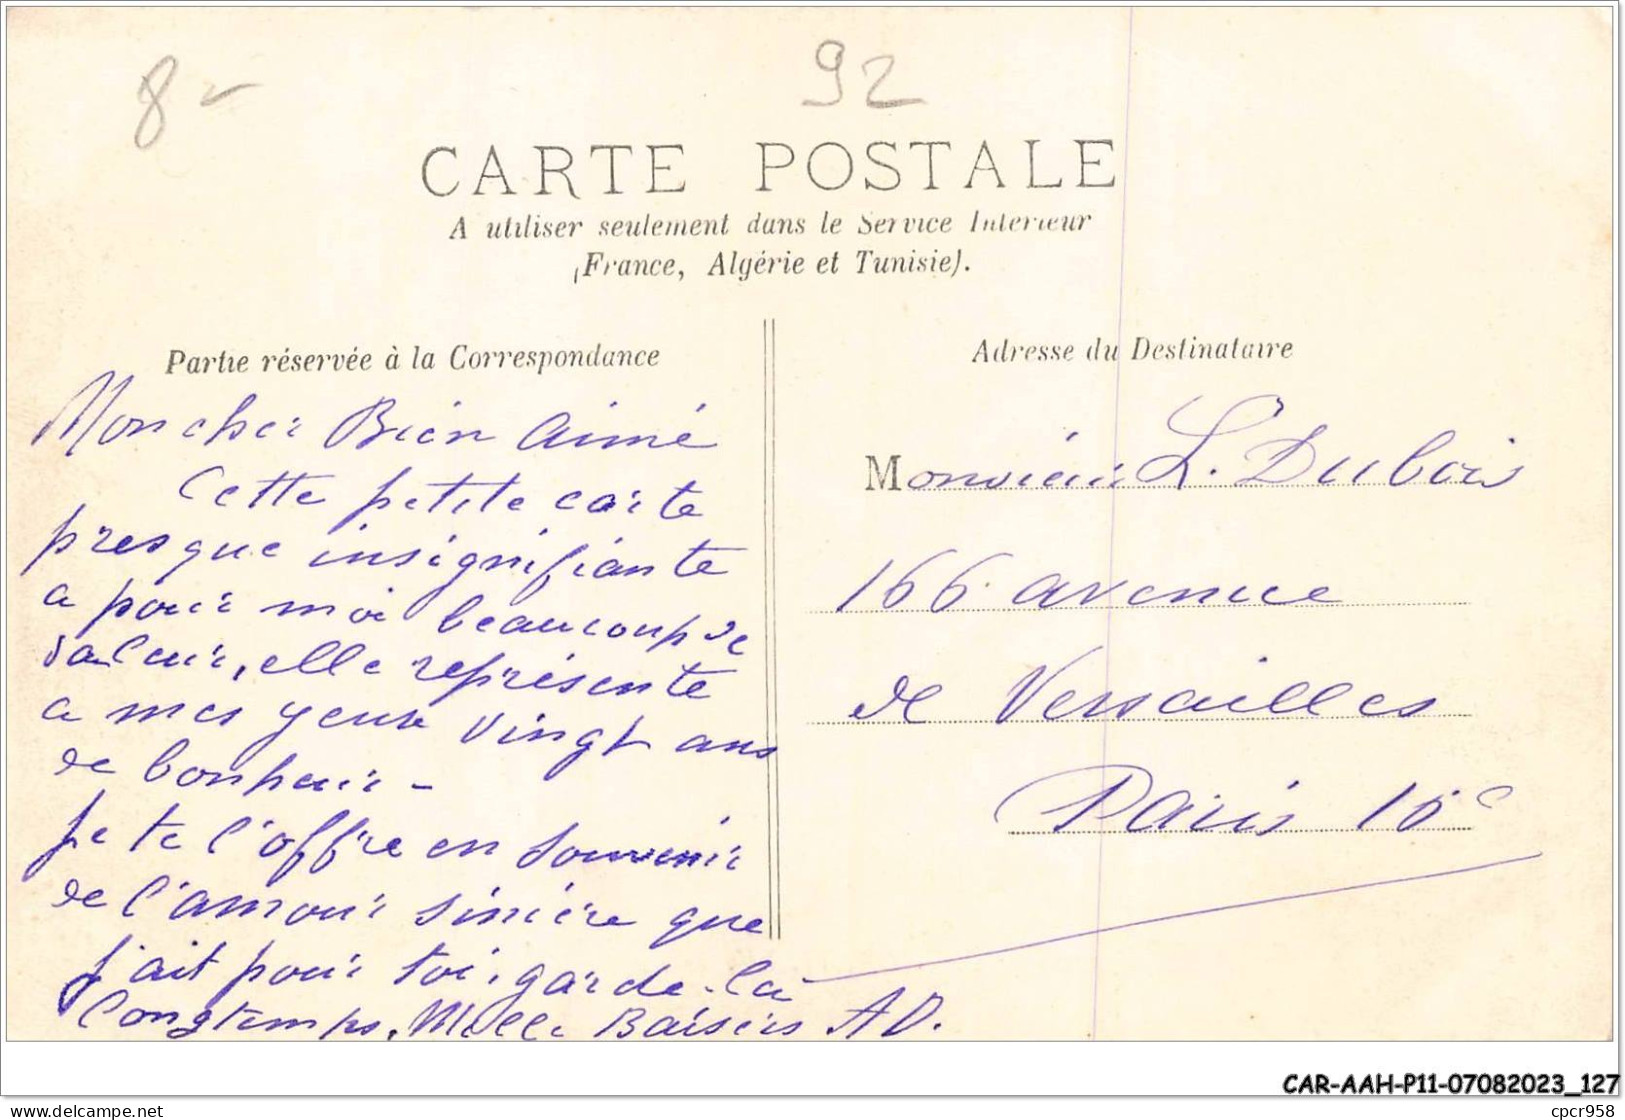 8-
92
CARTE POSTALE
A utiliser seulement dans le Service Intérieur
(France, Algérie et Tunisie).
Partie réservée à la Correspondance
Mon cher Bien Aimé
Cette petite carte
presque insignifiante
a pour moi beaucoup de
valeur, elle représente
a mes yeux vingt ans
de bonheur -
je te l'offre en souvenir
de l'amour sincère que
j'ait pour toi, garde-la
longtemps. Mille Baisers AD.
Adresse du Destinataire
Monsieur L. Dubois
166 avenue
de Versailles
Paris 16e
CAR-AAH-P11-07082023_127
delcampe.net
cpcr958